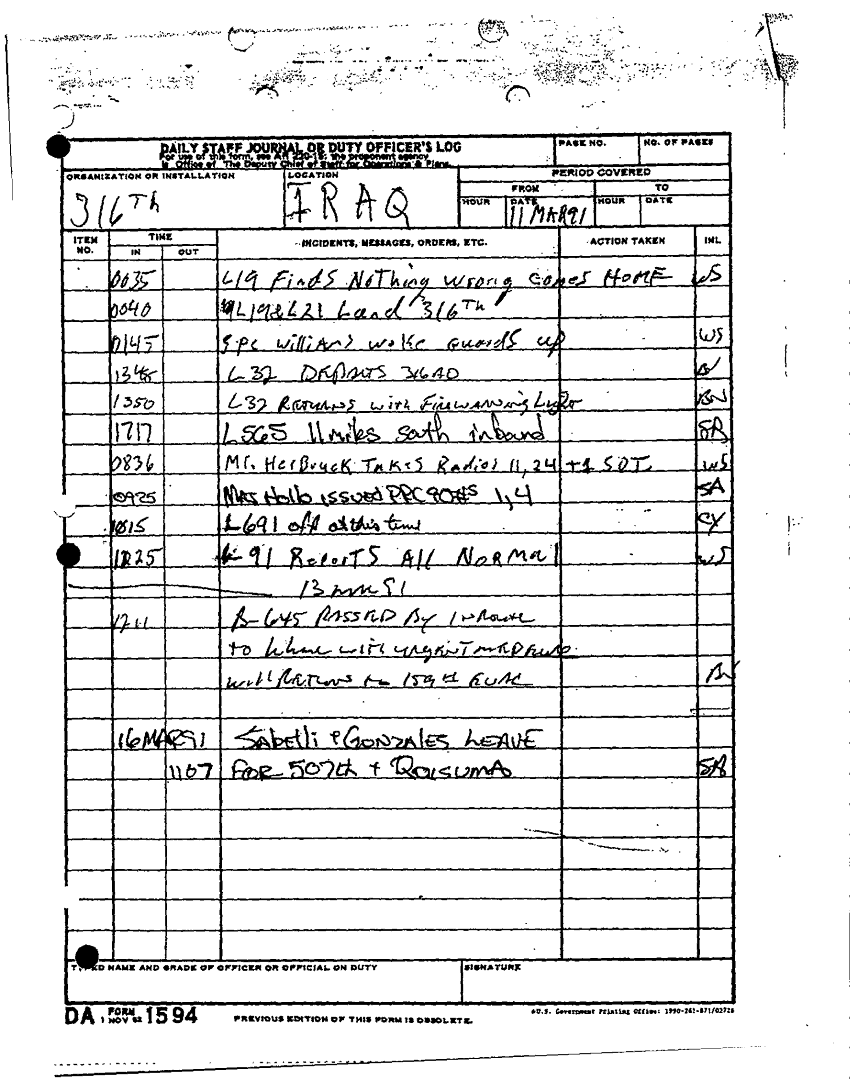 DAILY STAFF JOURNAL OR DUTY OFFICER'S LOG
For use of this form, see AR 220-15; the proponent agency
is Office of The Deputy Chief of Staff for Operations & Plans.
PAGE NO.
NO. OF PAGES
ORGANIZATION OR INSTALLATION
316Th
LOCATION
IRAQ
PERIOD COVERED
FROM
TO
HOUR
DATE
11 MAR91
HOUR
DATE
ITEM NO.
TIME
IN
OUT
INCIDENTS, MESSAGES, ORDERS, ETC.
ACTION TAKEN
INL
0035 L19 Finds Nothing Wrong comes HOME WS
0040 L19&L21 Land 316Th
0145 Spc Williams woke Guards up WS
L32 DEPARTS
1350 L32 RETURNS with Fire warning Light BN
1717 L565 11 miles south inbound SA
0836 Mr. Herbruck Takes Radios 11, 24 +1 SOI WS
0925 issued PRC90#s 1,4 SA
1015 L691 off at this time CY
L-91 Reports All Normal WS
13 MAR 91
1211 B-645 PASSED By
to with urgent
will RETURN to 159th EVAC
16MAR91 Sabelli & GONZALES LEAVE
1107 FOR 507th + SA
TYPED NAME AND GRADE OF OFFICER OR OFFICIAL ON DUTY
SIGNATURE
DA FORM 1 NOV 62 1594
PREVIOUS EDITION OF THIS FORM IS OBSOLETE.
U.S. Government Printing Office: 1990-261-871/02726